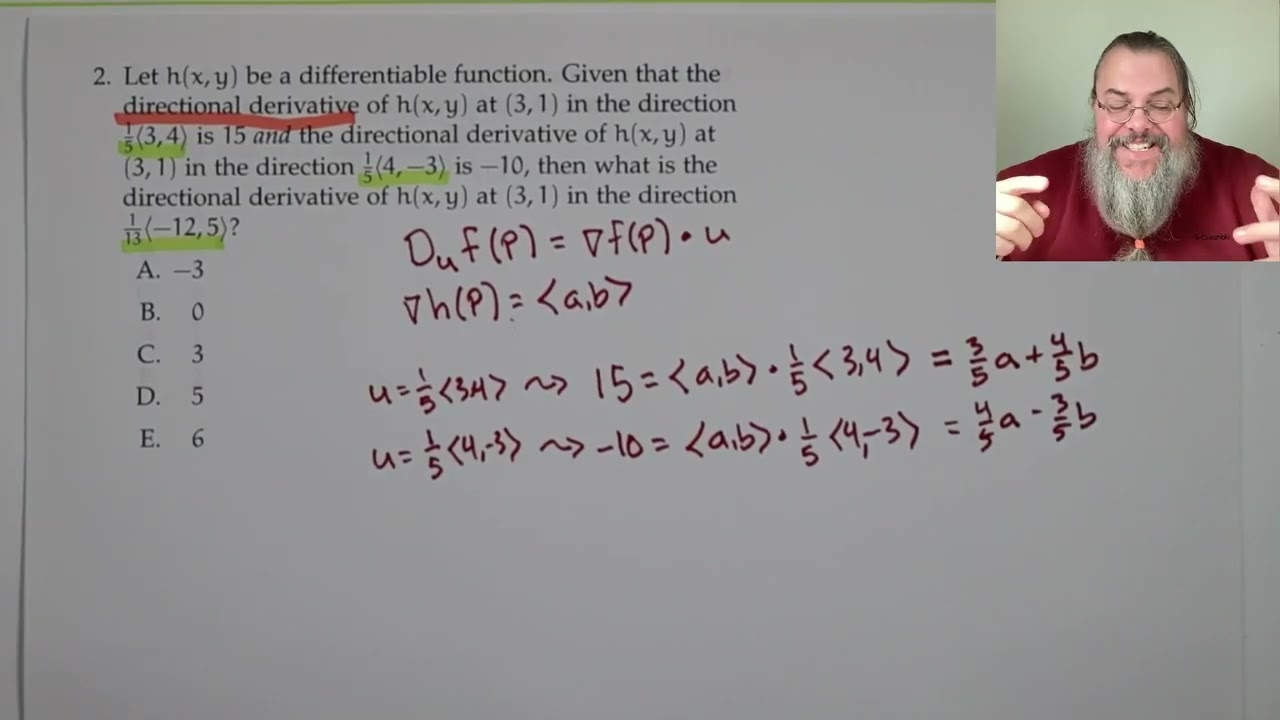 2. Let h(x, y) be a differentiable function. Given that the
directional derivative of h(x, y) at (3, 1) in the direction
1/5⟨3, 4⟩ is 15 and the directional derivative of h(x, y) at
(3, 1) in the direction 1/5⟨4, −3⟩ is −10, then what is the
directional derivative of h(x, y) at (3, 1) in the direction
1/13⟨−12, 5⟩?
A. −3
B. 0
C. 3
D. 5
E. 6
D_u f(P) = ∇f(P) • u
∇h(P) = ⟨a,b⟩
u = 1/5⟨3,4⟩ ⤳ 15 = ⟨a,b⟩ • 1/5⟨3,4⟩ = 3/5 a + 4/5 b
u = 1/5⟨4,-3⟩ ⤳ -10 = ⟨a,b⟩ • 1/5⟨4,-3⟩ = 4/5 a - 3/5 b